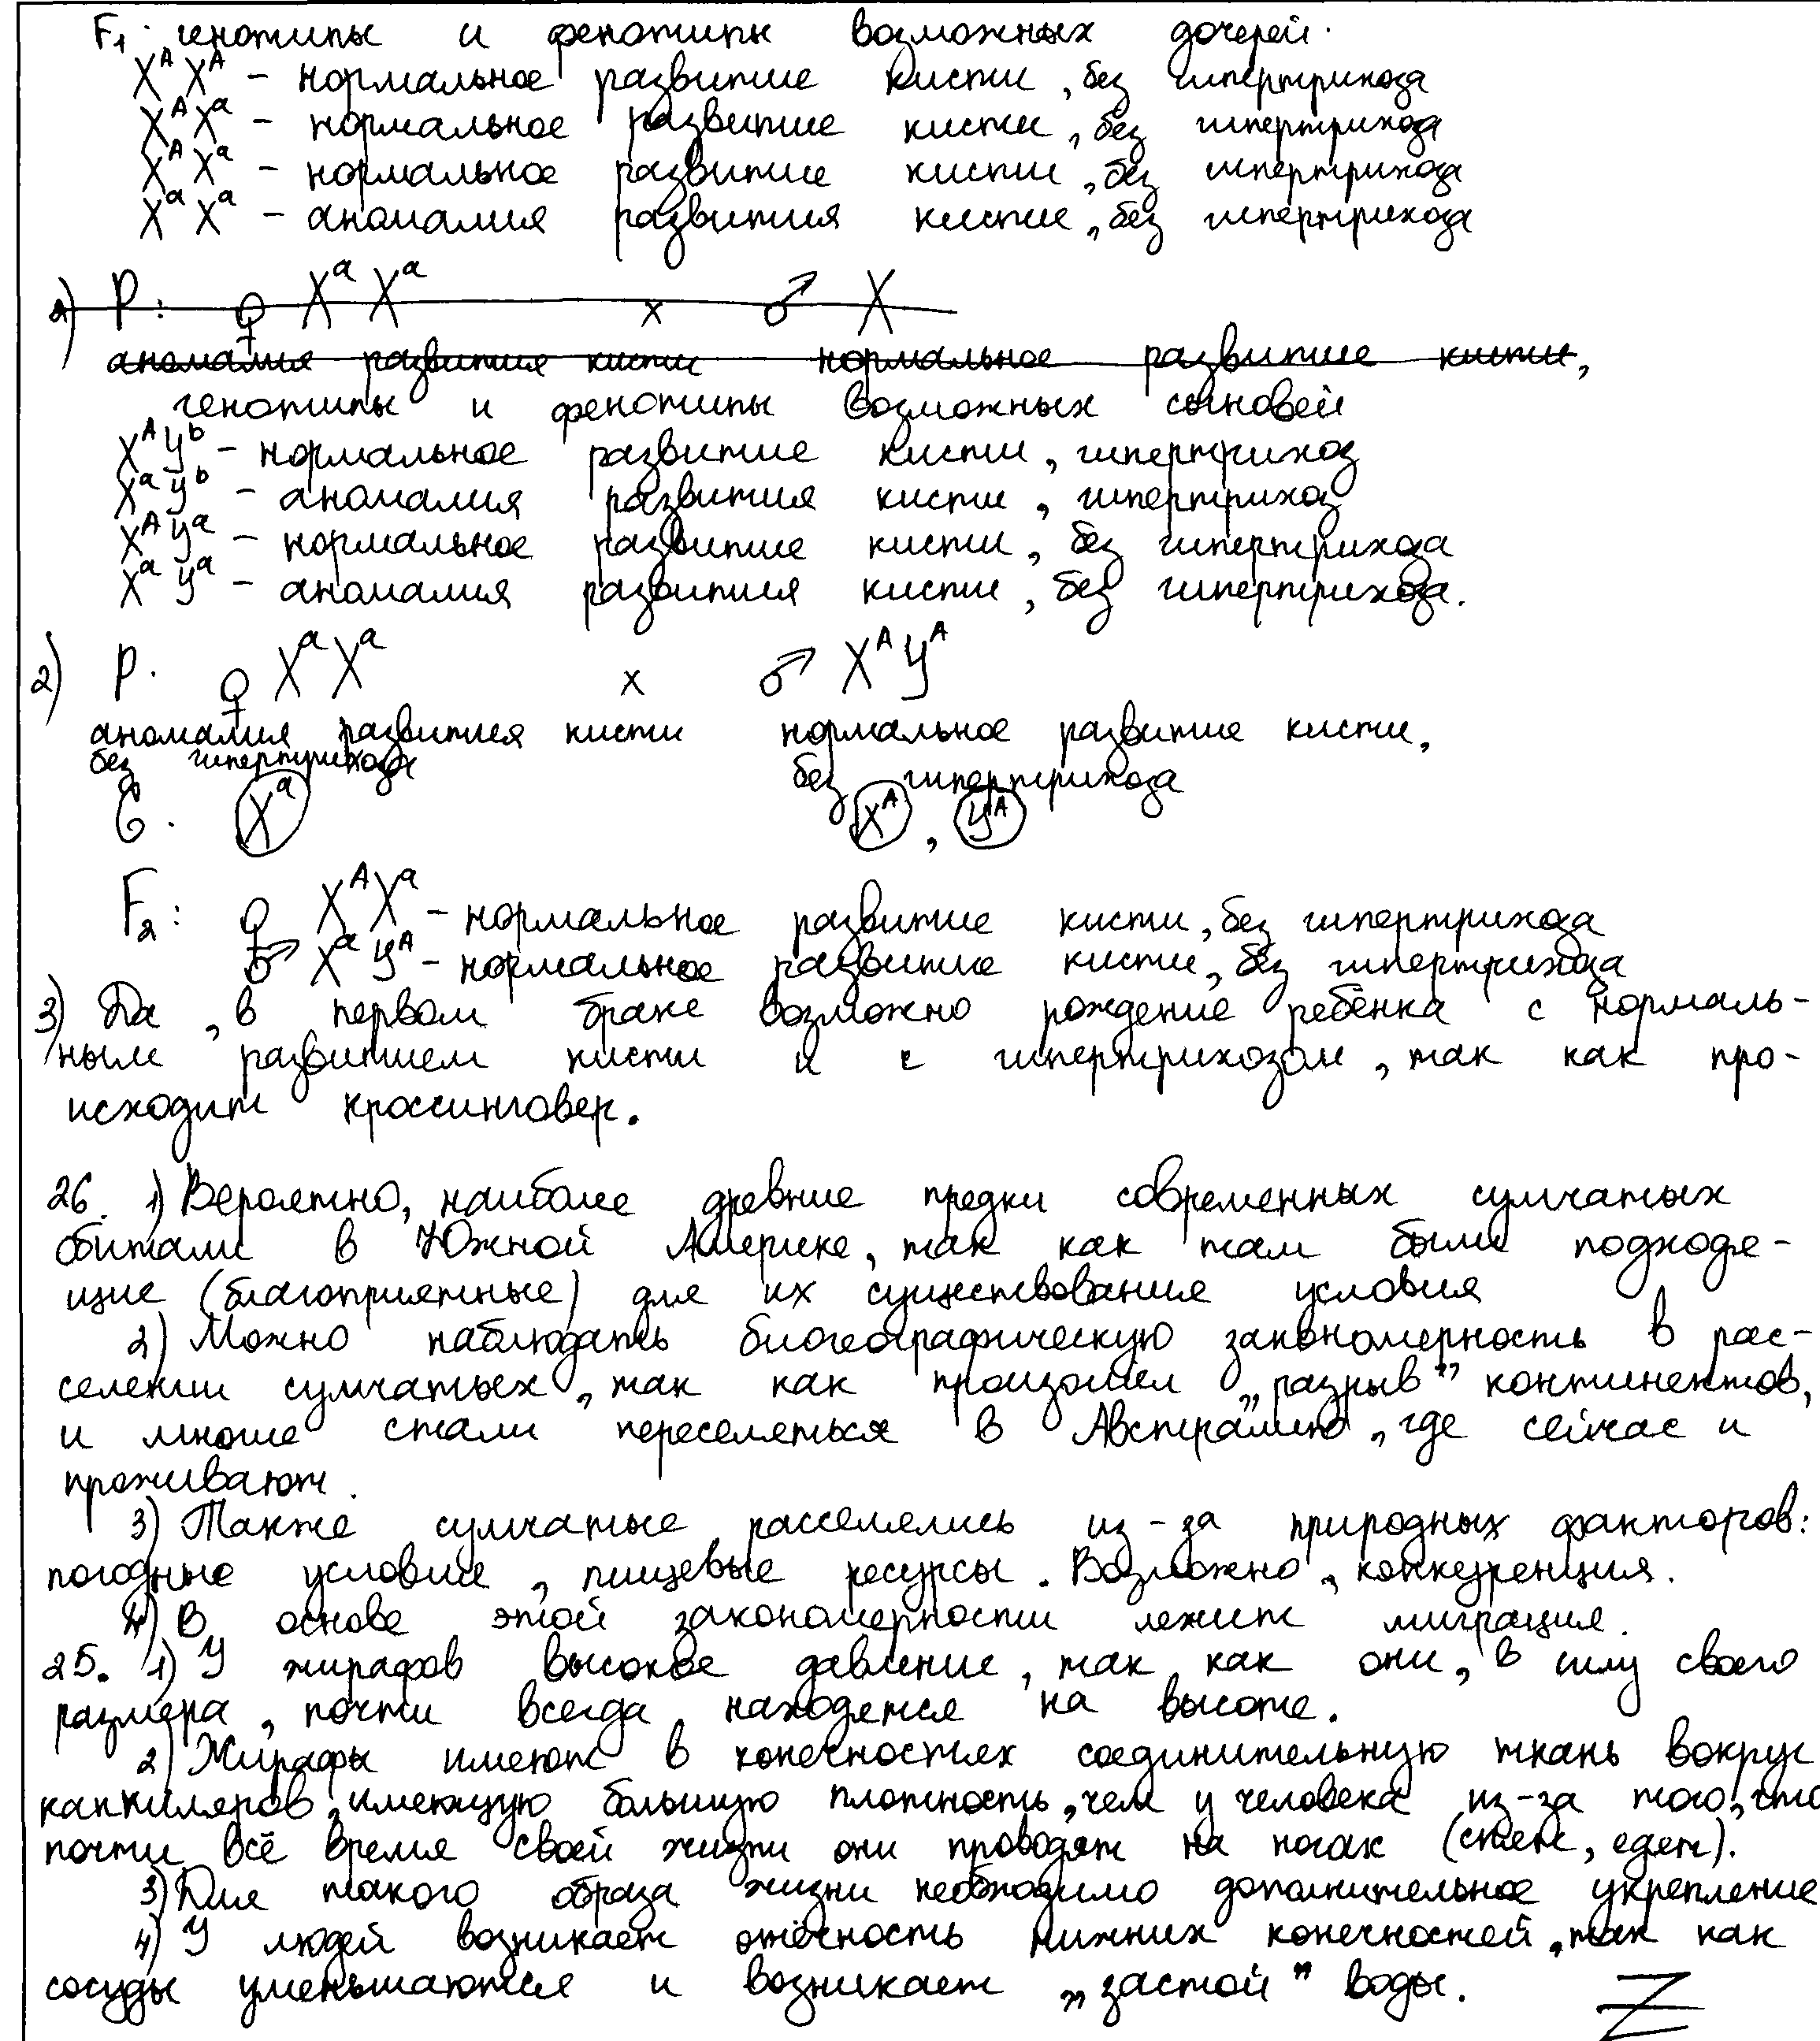 F₁: генотипы и фенотипы возможных дочерей:
XᴬXᴬ – нормальное развитие кисти, без гипертрихоза
XᴬXᵃ – нормальное развитие кисти, без гипертрихоза
XᴬXᵃ – нормальное развитие кисти, без гипертрихоза
XᵃXᵃ – аномалия развития кисти, без гипертрихоза
2) P: ♀ XᵃXᵃ x ♂ X
аномалия развития кисти нормальное развитие кисти,
генотипы и фенотипы возможных сыновей
XᴬYᵇ – нормальное развитие кисти, гипертрихоз
XᵃYᵇ – аномалия развития кисти, гипертрихоз
XᴬYᵃ – нормальное развитие кисти, без гипертрихоза
XᵃYᵃ – аномалия развития кисти, без гипертрихоза.
2) P. ♀ XᵃXᵃ x ♂ XᴬYᴬ
аномалия развития кисти нормальное развитие кисти,
без гипертрихоза без гипертрихоза
G. Xᵃ Xᴬ, Yᴬ
F₂: ♀ XᴬXᵃ – нормальное развитие кисти, без гипертрихоза
♂ XᵃYᴬ – нормальное развитие кисти, без гипертрихоза
3) Да, в первом браке возможно рождение ребёнка с нормаль-
ным развитием кисти и с гипертрихозом, так как про-
исходит кроссинговер.
26. 1) Вероятно, наиболе древние предки современных сумчатых
обитали в Южной Америке, так как там были подходя-
щие (благоприятные) для их существования условия
2) Можно наблюдать биогеографическую закономерность в рас-
селении сумчатых, так как произошёл „разрыв" континентов,
и многие стали переселяться в Австралию, где сейчас и
проживают.
3) Также сумчатые расселялись из-за природных факторов:
погодные условие, пищевые ресурсы. Возможно, конкуренция.
4) В основе этой закономерности лежит миграция.
25. 1) У жирафов высокое давление, так как они, в силу своего
размера, почти всегда находятся на высоте.
2) Жирафы имеют в конечностях соединительную ткань вокруг
капиляров, имеющую большую плотность, чем у человека из-за того, что
почти всё время своей жизни они проводят на ногах (спят, едят).
3) Для такого образа жизни необходимо дополнительное укрепление
4) У людей возникает отёчность нижних конечностей, так как
сосуды уменьшаются и возникает „застой" воды.